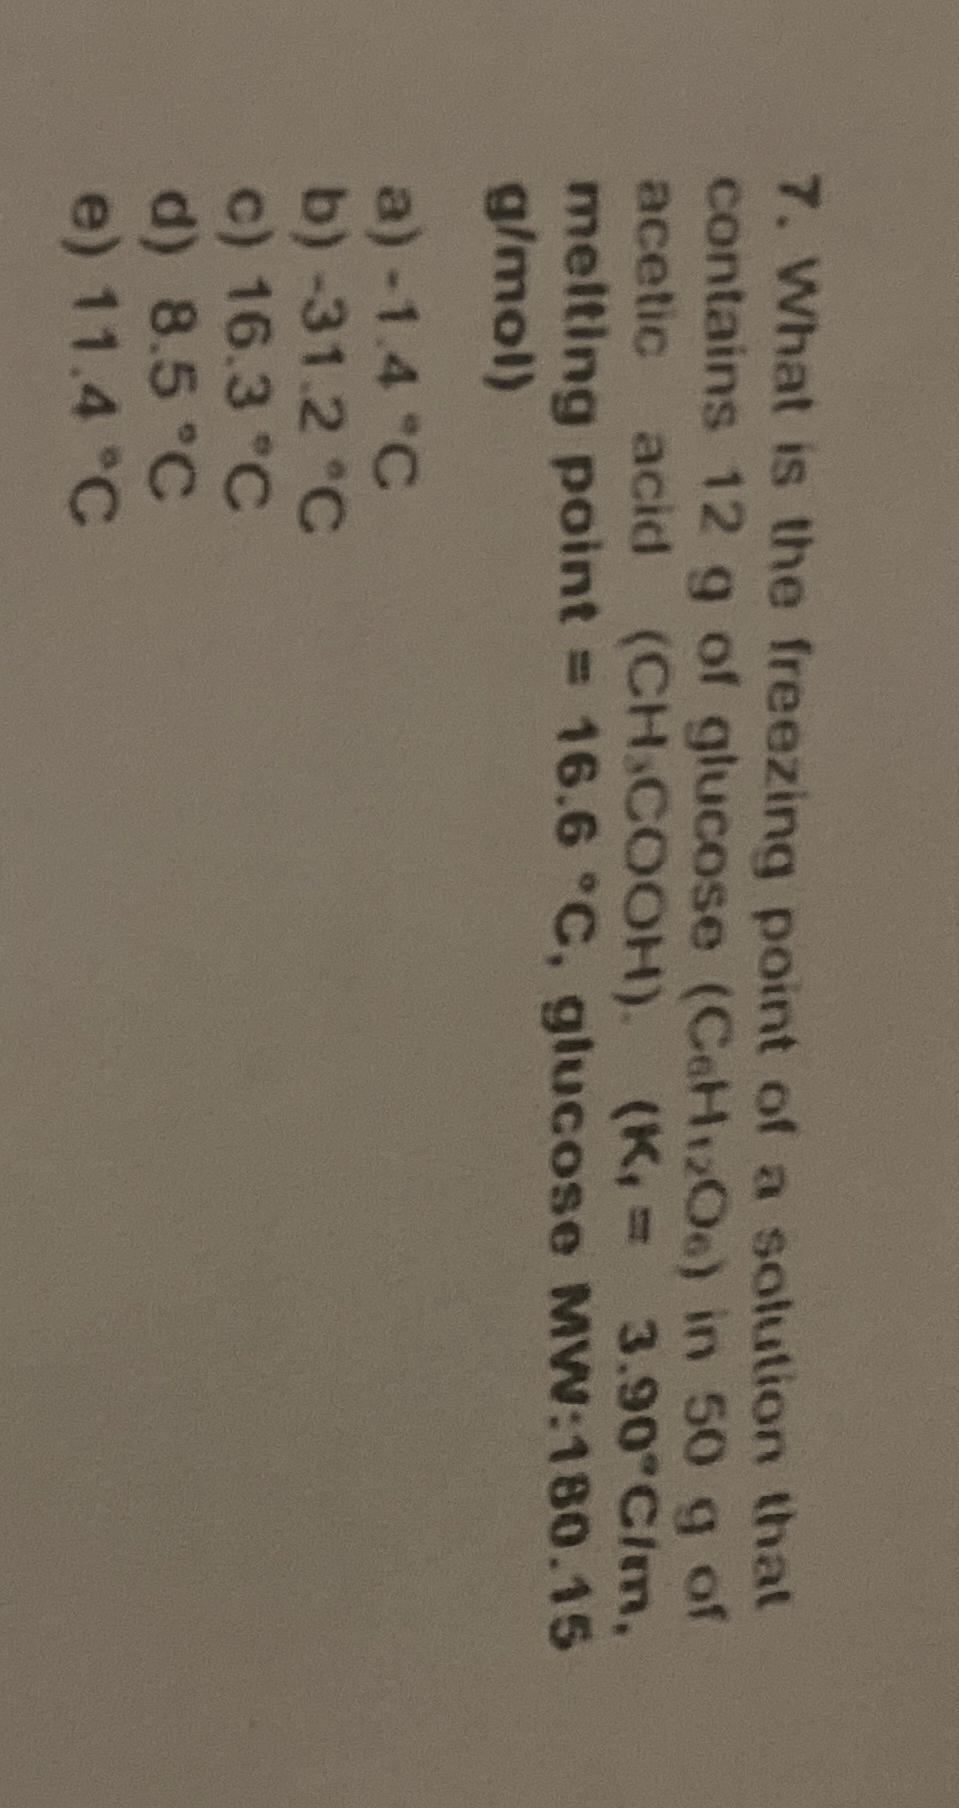 7. What is the freezing point of a solution that
contains 12 g of glucose (C₆H₁₂O₆) in 50 g of
acetic acid (CH₃COOH). (Kf = 3.90°C/m,
melting point = 16.6 °C, glucose MW:180.15
g/mol)
a) -1.4 °C
b) -31.2 °C
c) 16.3 °C
d) 8.5 °C
e) 11.4 °C